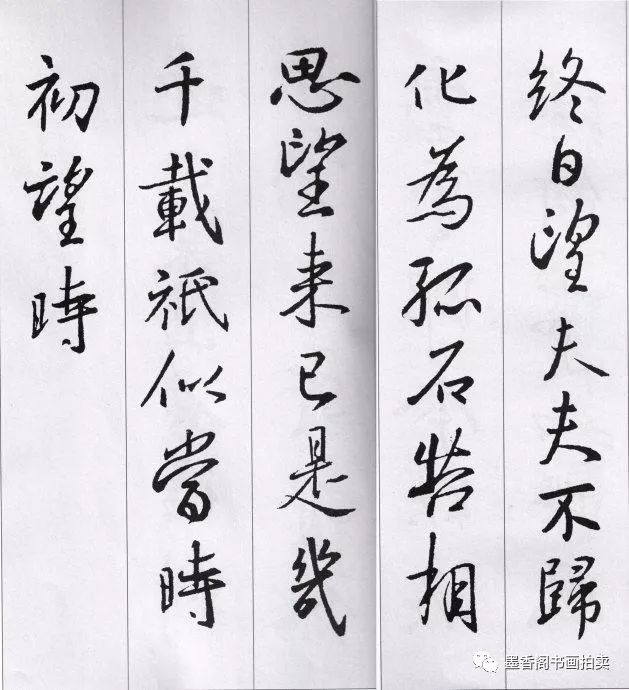 終日望夫夫不歸
化為孤石苦相
思望来已是幾
千載祇似當時
初望時
墨香阁书画拍卖